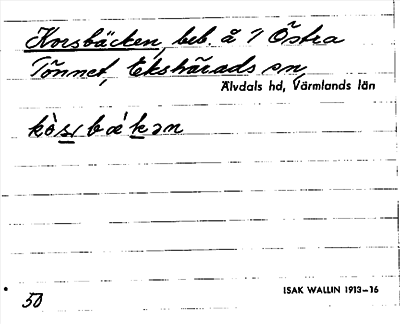 Korsbäcken, beb. å 1/ Östra
Tönnet, Ekshärads sn,
Älvdals hd, Värmlands län
kòsʃbákən
50
ISAK WALLIN 1913–16